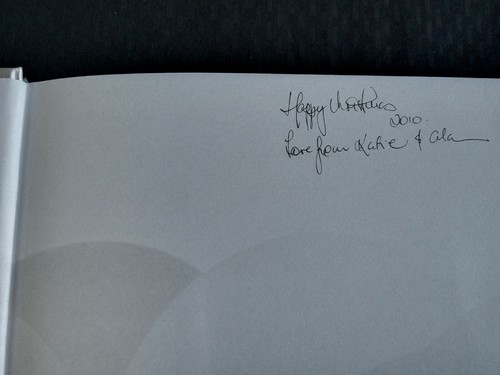 Happy Christmas
2010.
Love from Katie & Alan